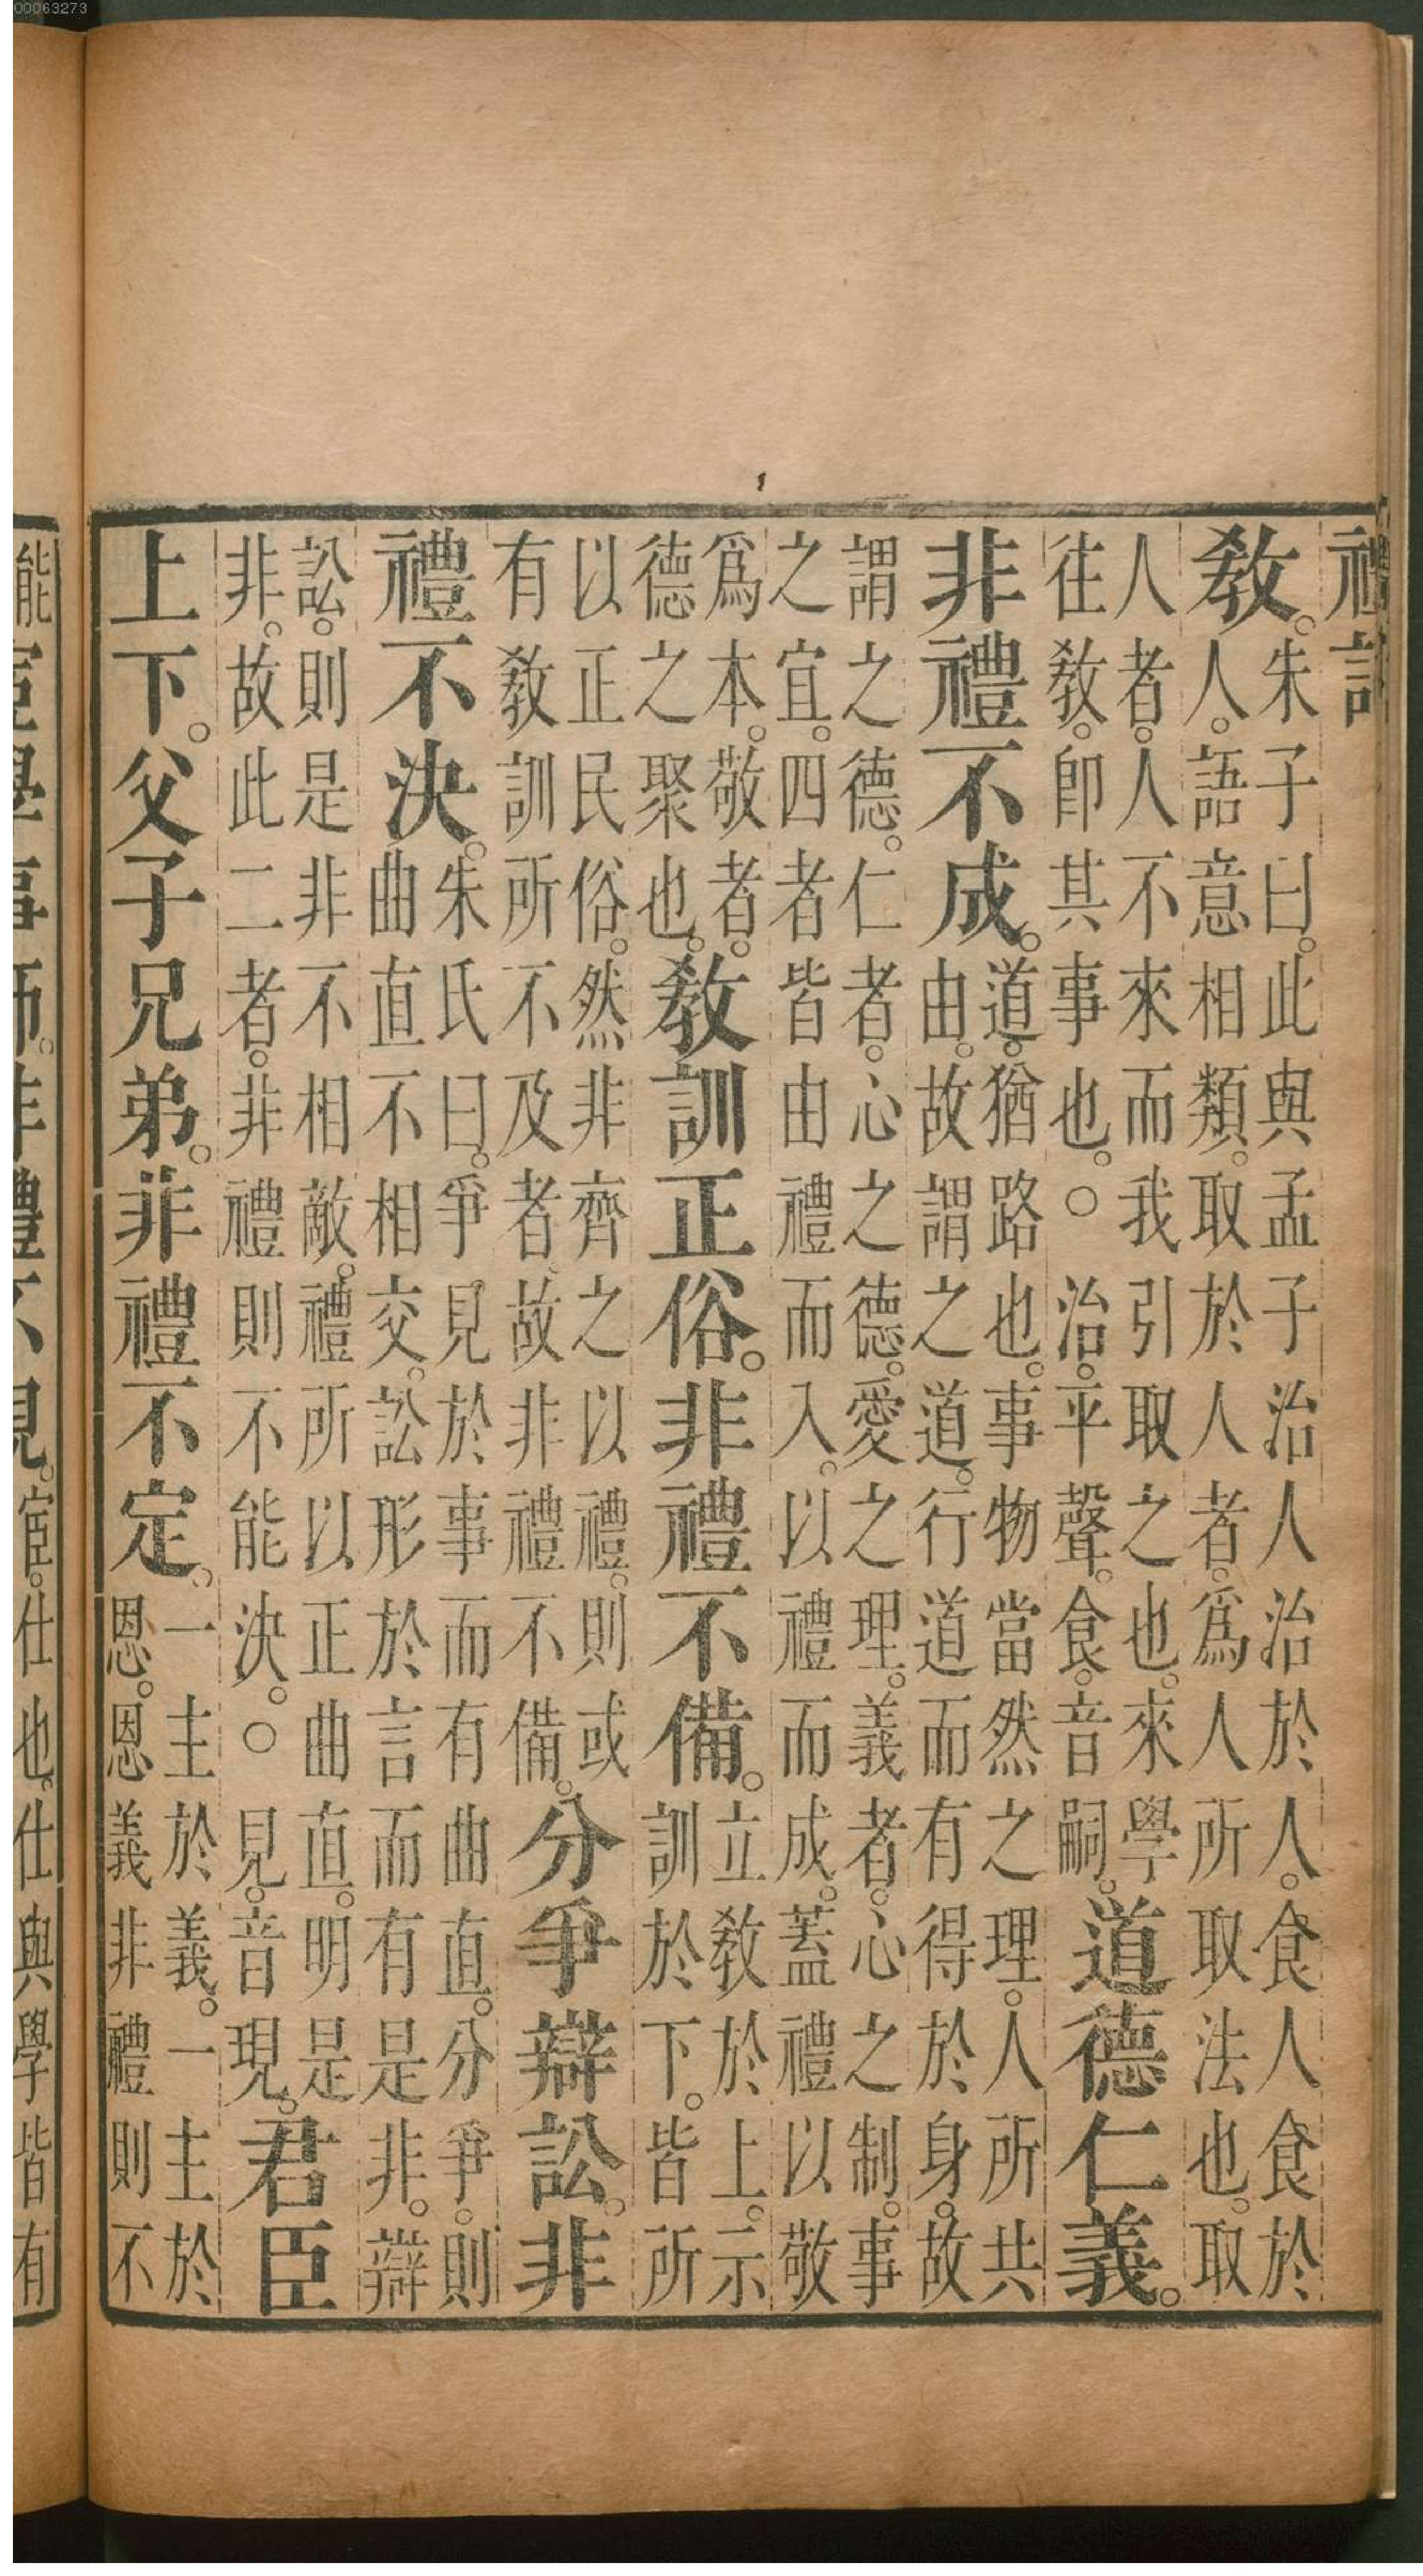 禮記
敎。朱子曰。此與孟子治人治於人。食人食於
人。語意相類。取於人者。爲人所取法也。取
人者。人不來而我引取之也。來學
往敎。卽其事也。○治。平聲。食。音嗣。道德仁義。
非禮不成。道。猶路也。事物當然之理。人所共
由。故謂之道。行道而有得於身。故
謂之德。仁者。心之德。愛之理。義者。心之制。事
之宜。四者皆由禮而入。以禮而成。蓋禮以敬
爲本。敬者。
德之聚也。敎訓正俗。非禮不備。立敎於上。示
訓於下。皆所
以正民俗。然非齊之以禮。則或
有敎訓所不及者。故非禮不備。分爭辯訟。非
禮不決。朱氏曰。爭見於事而有曲直。分爭。則
曲直不相交。訟形於言而有是非。辯
訟。則是非不相敵。禮所以正曲直。明是
非。故此二者。非禮則不能決。○見。音現。君臣
上下。父子兄弟。非禮不定。一主於義。一主於
恩。恩義非禮則不
能宦學事師。非禮不親。宦。仕也。仕與學皆有
00063273